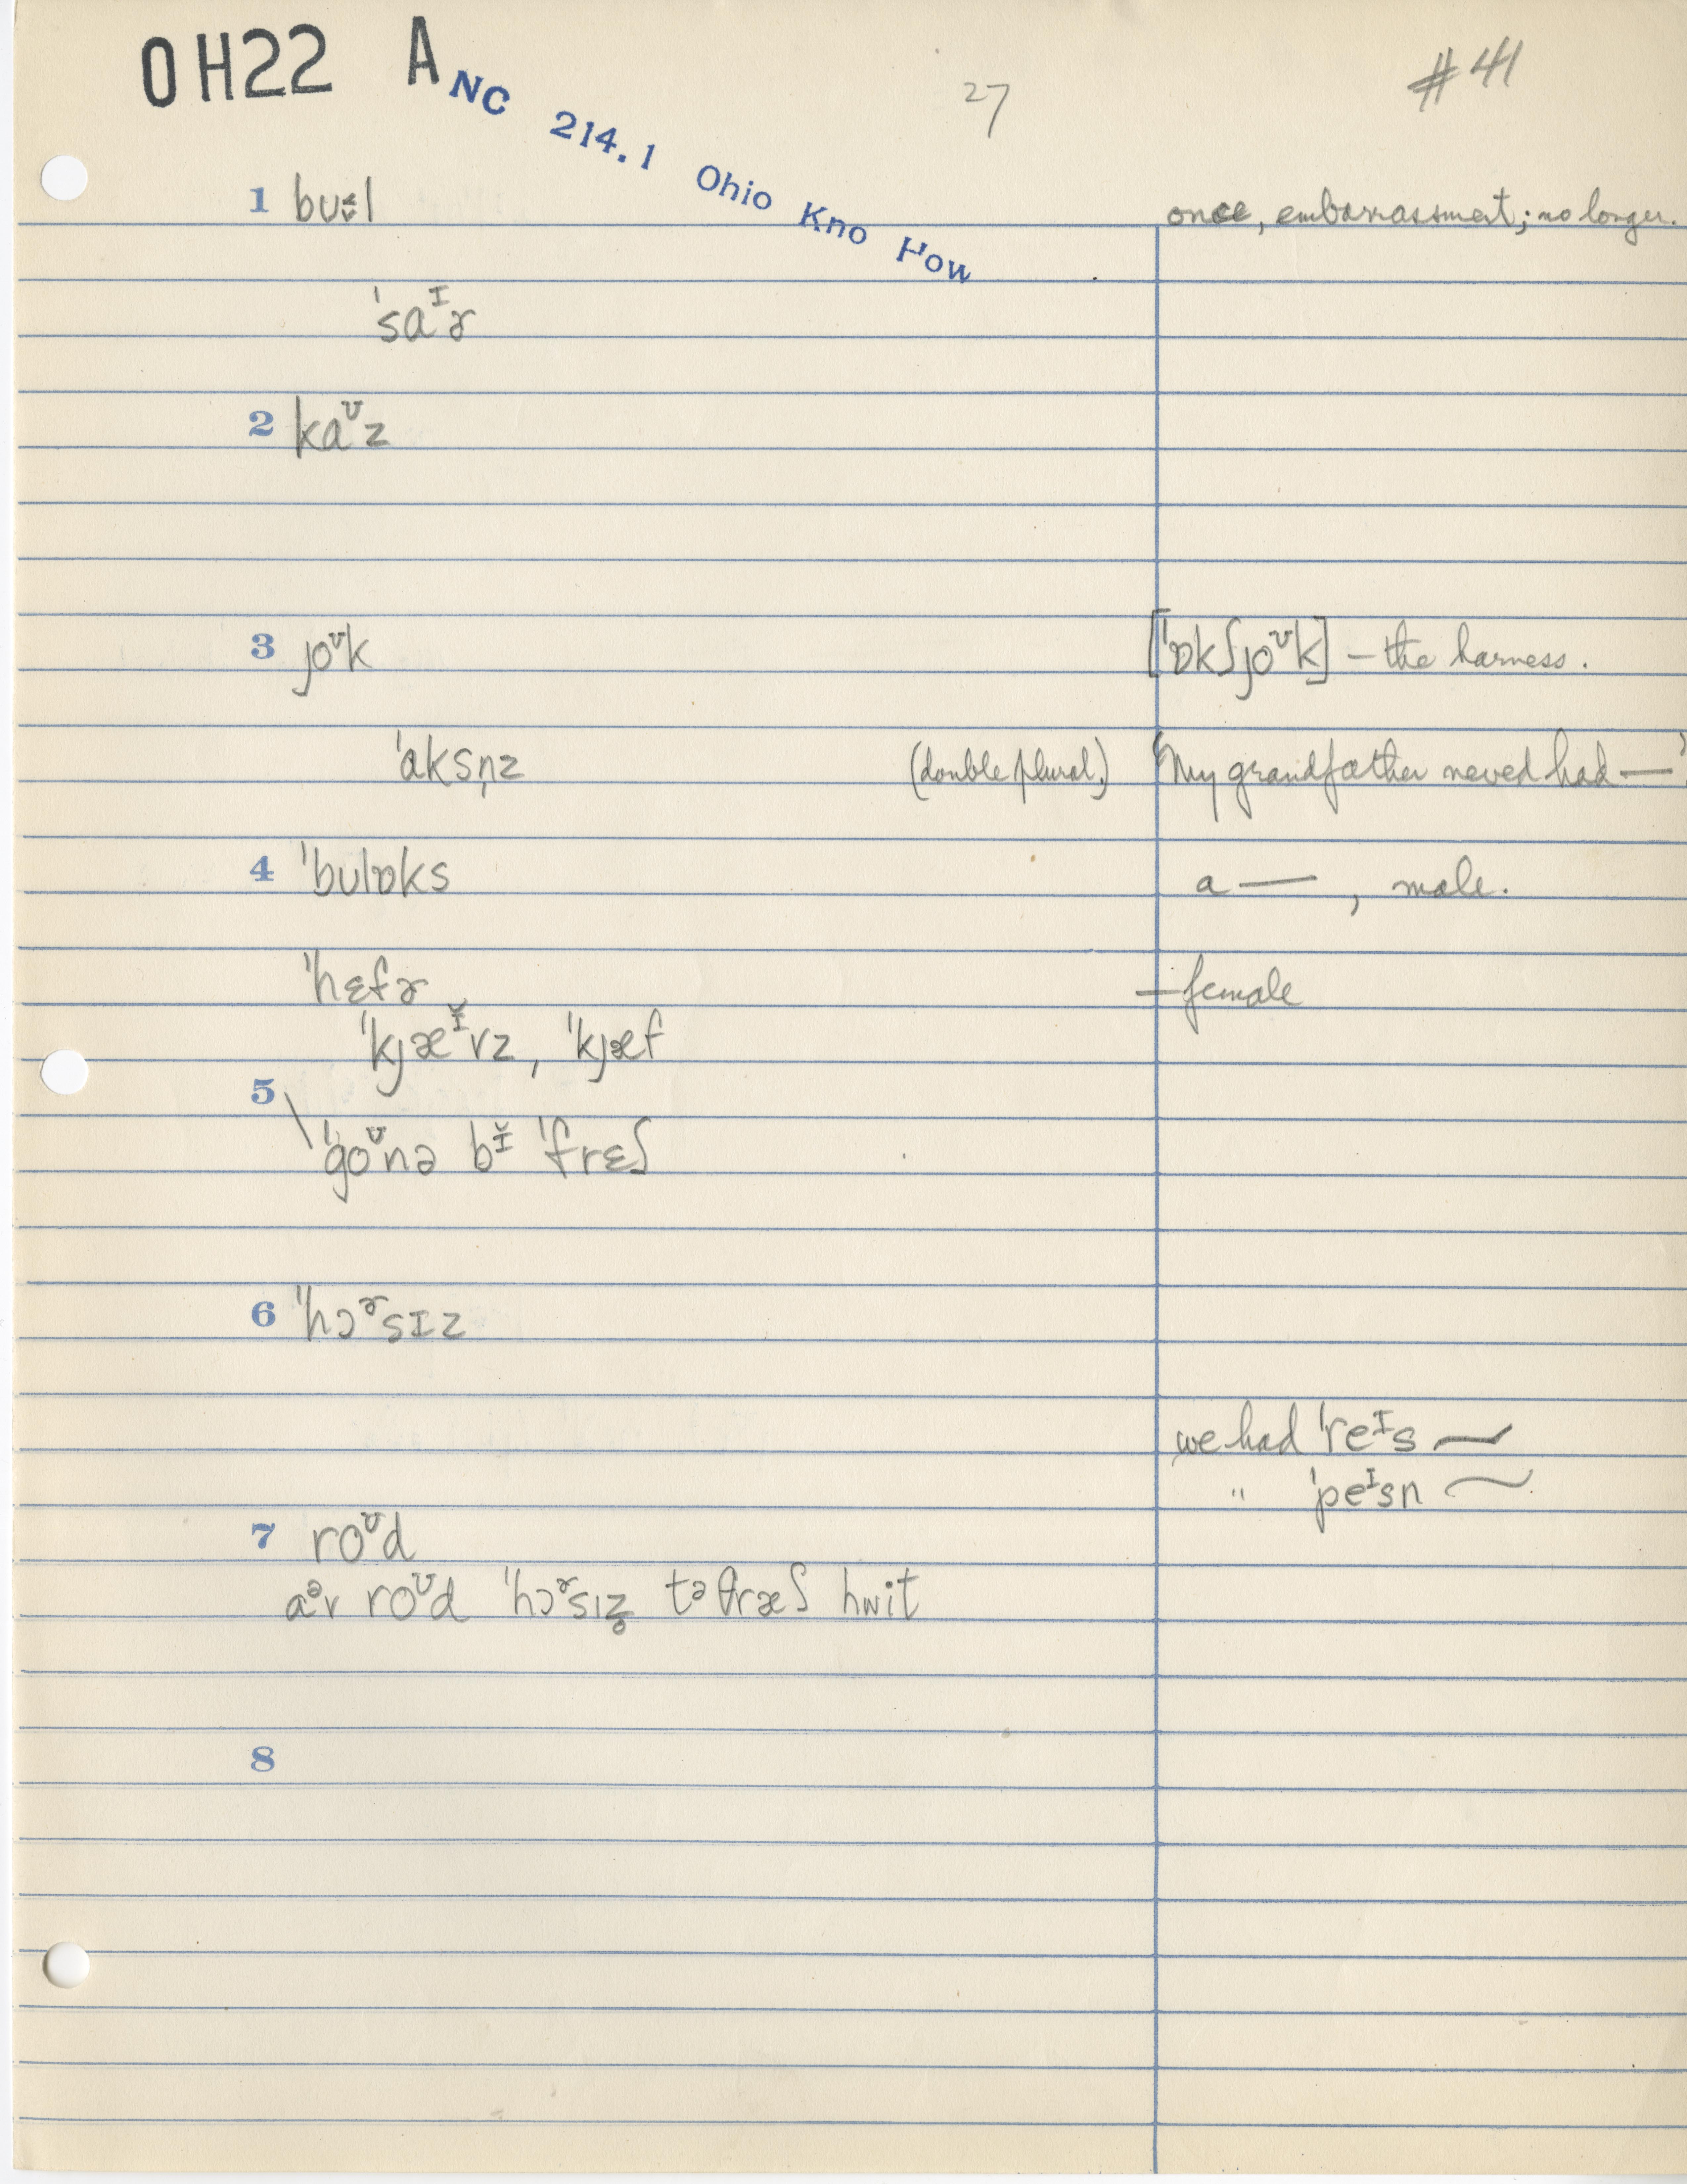 OH22 A
NC 214.1 Ohio Kno How
27
#41
1 bu˔˕l once, embarrassment; no longer.
ˈsaᶦɚ
2 kaᶷz
3 joᶷk [ˈɒksjoᶷk] – the harness.
ˈaksn̩z (double plural.) "My grandfather neved had —"
4 ˈbulɒks a —, male.
ˈhɛfɚ — female
ˈkjæᶦ̆vz, ˈkjæf
5
ˈgoᶷnə bɪ̆ ˈfrɛʃ
6 ˈhɔᵊ˞sɪz
we had ˈreᶦs —
" ˈpeᶦsn —
7 roᶷd
aᵊv roᶷd ˈhɔᵊ˞sɪz̥ tə θræʃ hwit
8